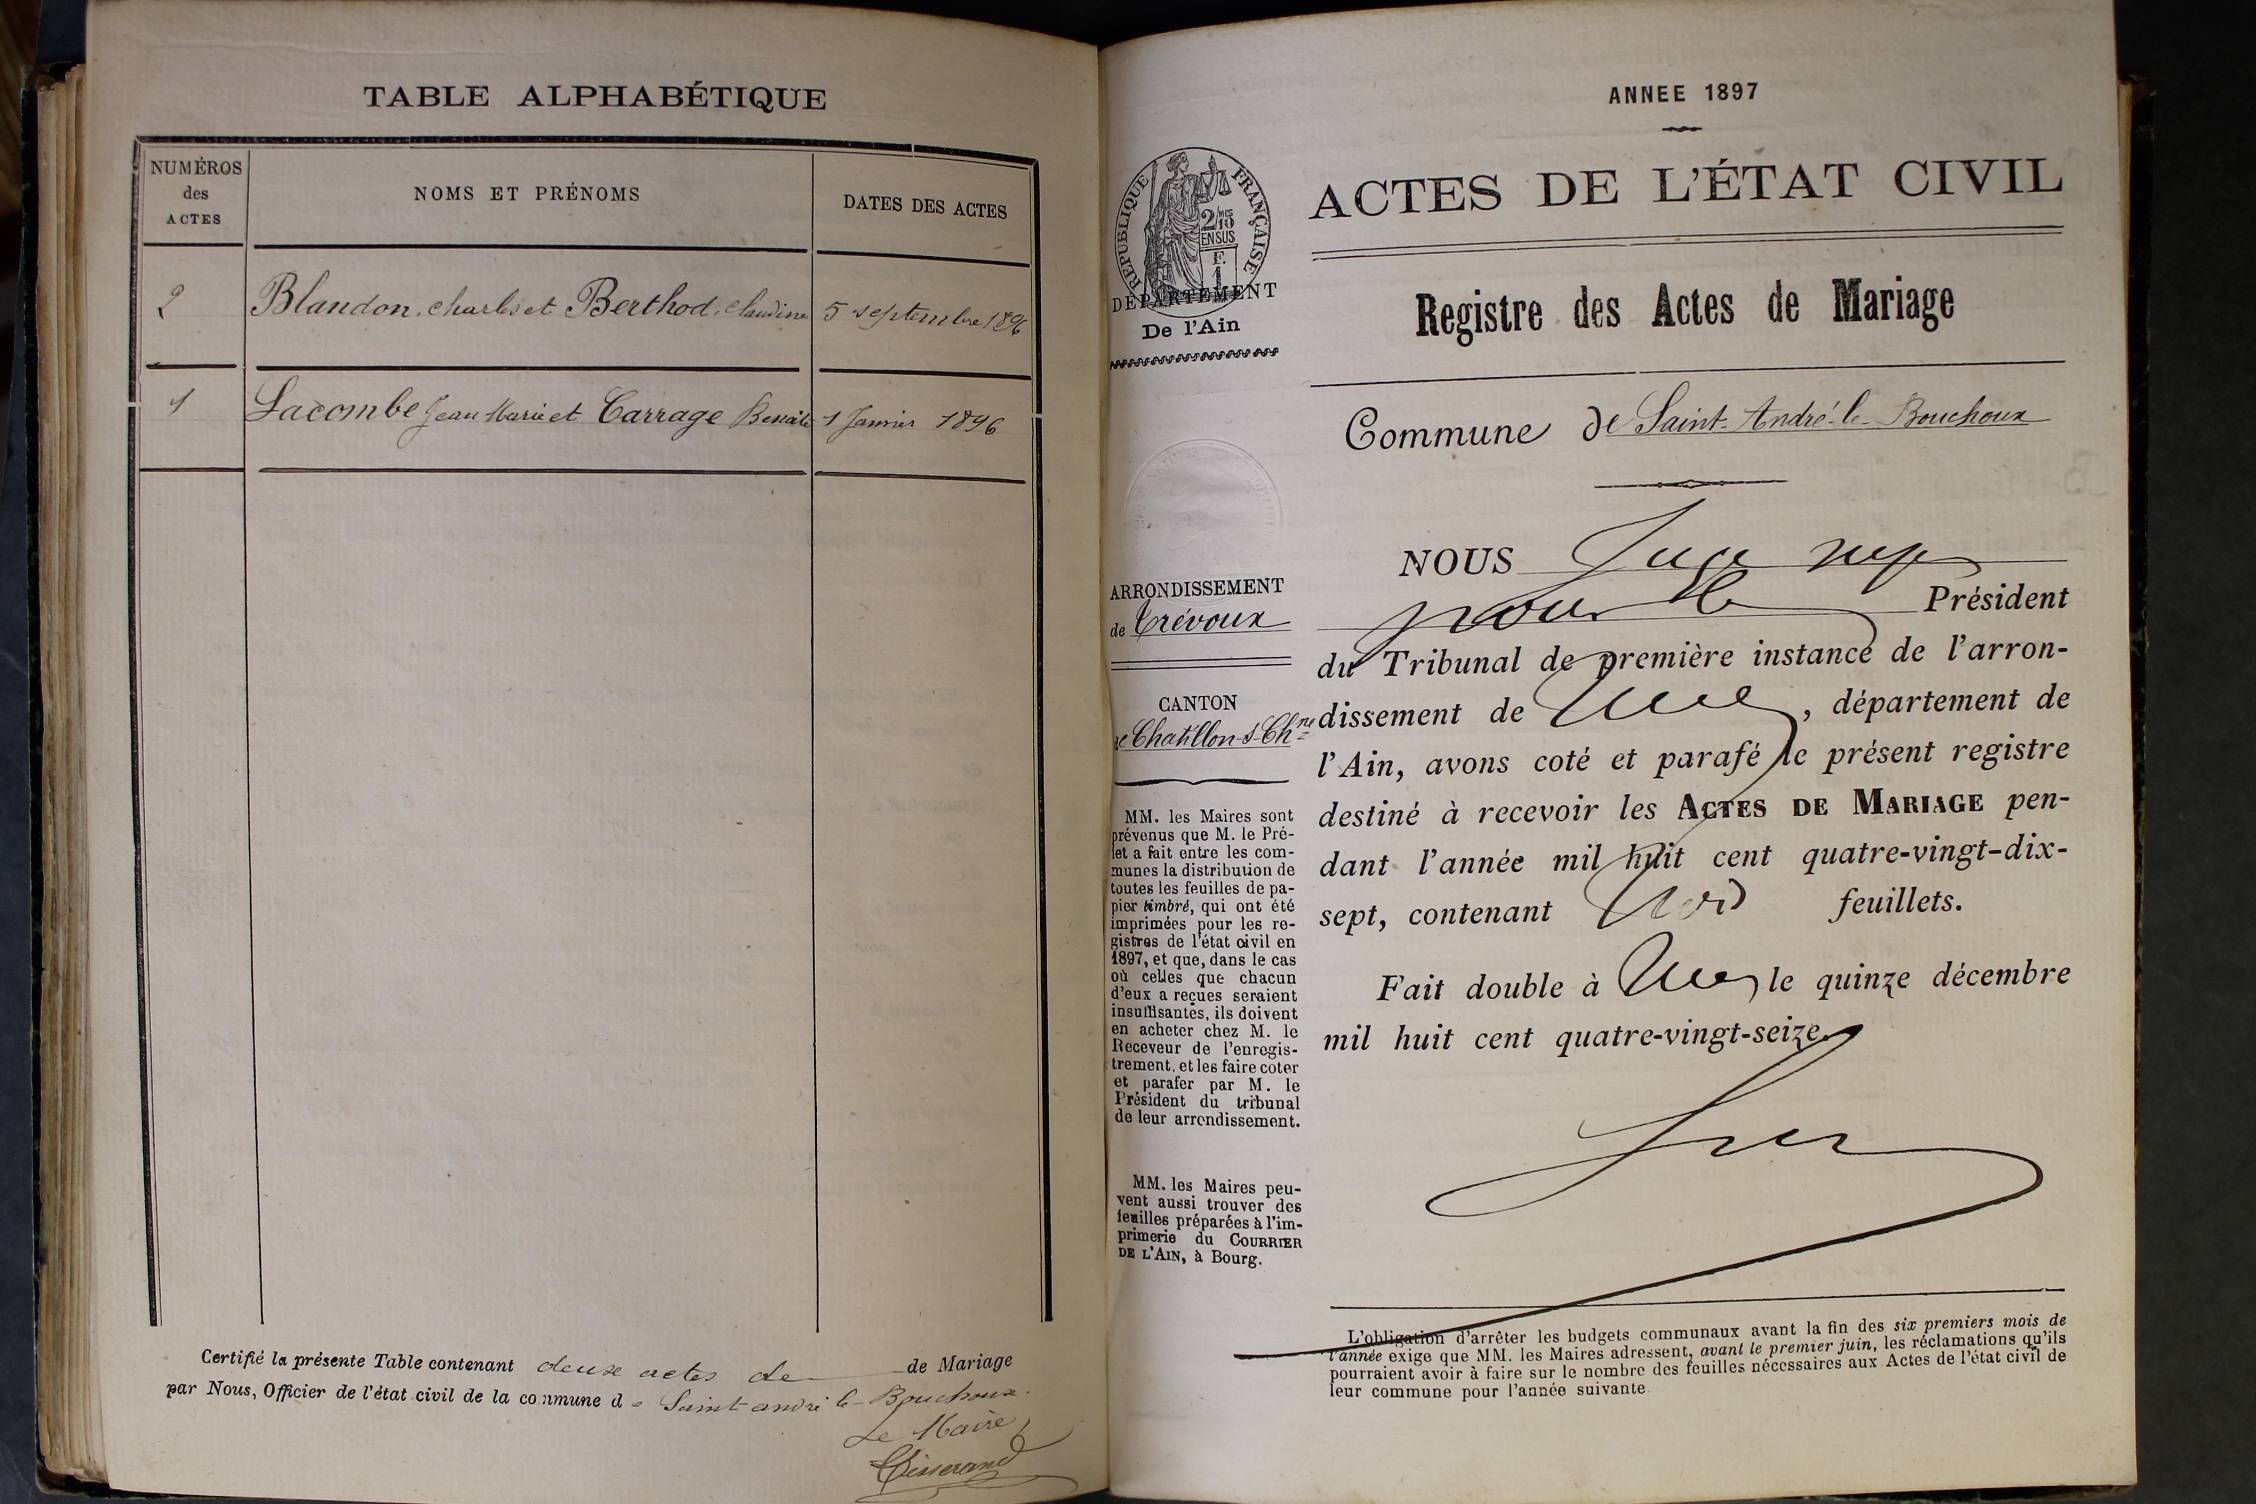 TABLE ALPHABÉTIQUE
NUMÉROS
des
ACTES
NOMS ET PRÉNOMS
DATES DES ACTES
2 Blandon, Charles et Berthod, Claudine 5 septembre 1896
1 Lacombe Jean Marie et Carrage Benoite 1 Janvier 1896
Certifié la présente Table contenant deux actes de de Mariage
par Nous, Officier de l'état civil de la commune d e Saint andré le Bouchoux.
Le Maire,
Tisserand
ANNEE 1897
RÉPUBLIQUE FRANÇAISE
2/10mes
EN SUS
F.
1
DÉPARTEMENT
De l'Ain
ARRONDISSEMENT
de Trévoux
CANTON
de Chatillon-s-Chne
MM. les Maires sont
prévenus que M. le Pré-
fet a fait entre les com-
munes la distribution de
toutes les feuilles de pa-
pier timbré, qui ont été
imprimées pour les re-
gistres de l'état civil en
1897, et que, dans le cas
où celles que chacun
d'eux a reçues seraient
insuffisantes, ils doivent
en acheter chez M. le
Receveur de l'enregis-
trement, et les faire coter
et parafer par M. le
Président du tribunal
de leur arrondissement.
MM. les Maires peu-
vent aussi trouver des
feuilles préparées à l'im-
primerie du COURRIER
DE L'AIN, à Bourg.
ACTES DE L'ÉTAT CIVIL
Registre des Actes de Mariage
Commune de Saint-André-le-Bouchoux
NOUS Juge
pour le Président
du Tribunal de première instance de l'arron-
dissement de , département de
l'Ain, avons coté et parafé le présent registre
destiné à recevoir les ACTES DE MARIAGE pen-
dant l'année mil huit cent quatre-vingt-dix-
sept, contenant feuillets.
Fait double à le quinze décembre
mil huit cent quatre-vingt-seize.
L'obligation d'arrêter les budgets communaux avant la fin des six premiers mois de
l'année exige que MM. les Maires adressent, avant le premier juin, les réclamations qu'ils
pourraient avoir à faire sur le nombre des feuilles nécessaires aux Actes de l'état civil de
leur commune pour l'année suivante.